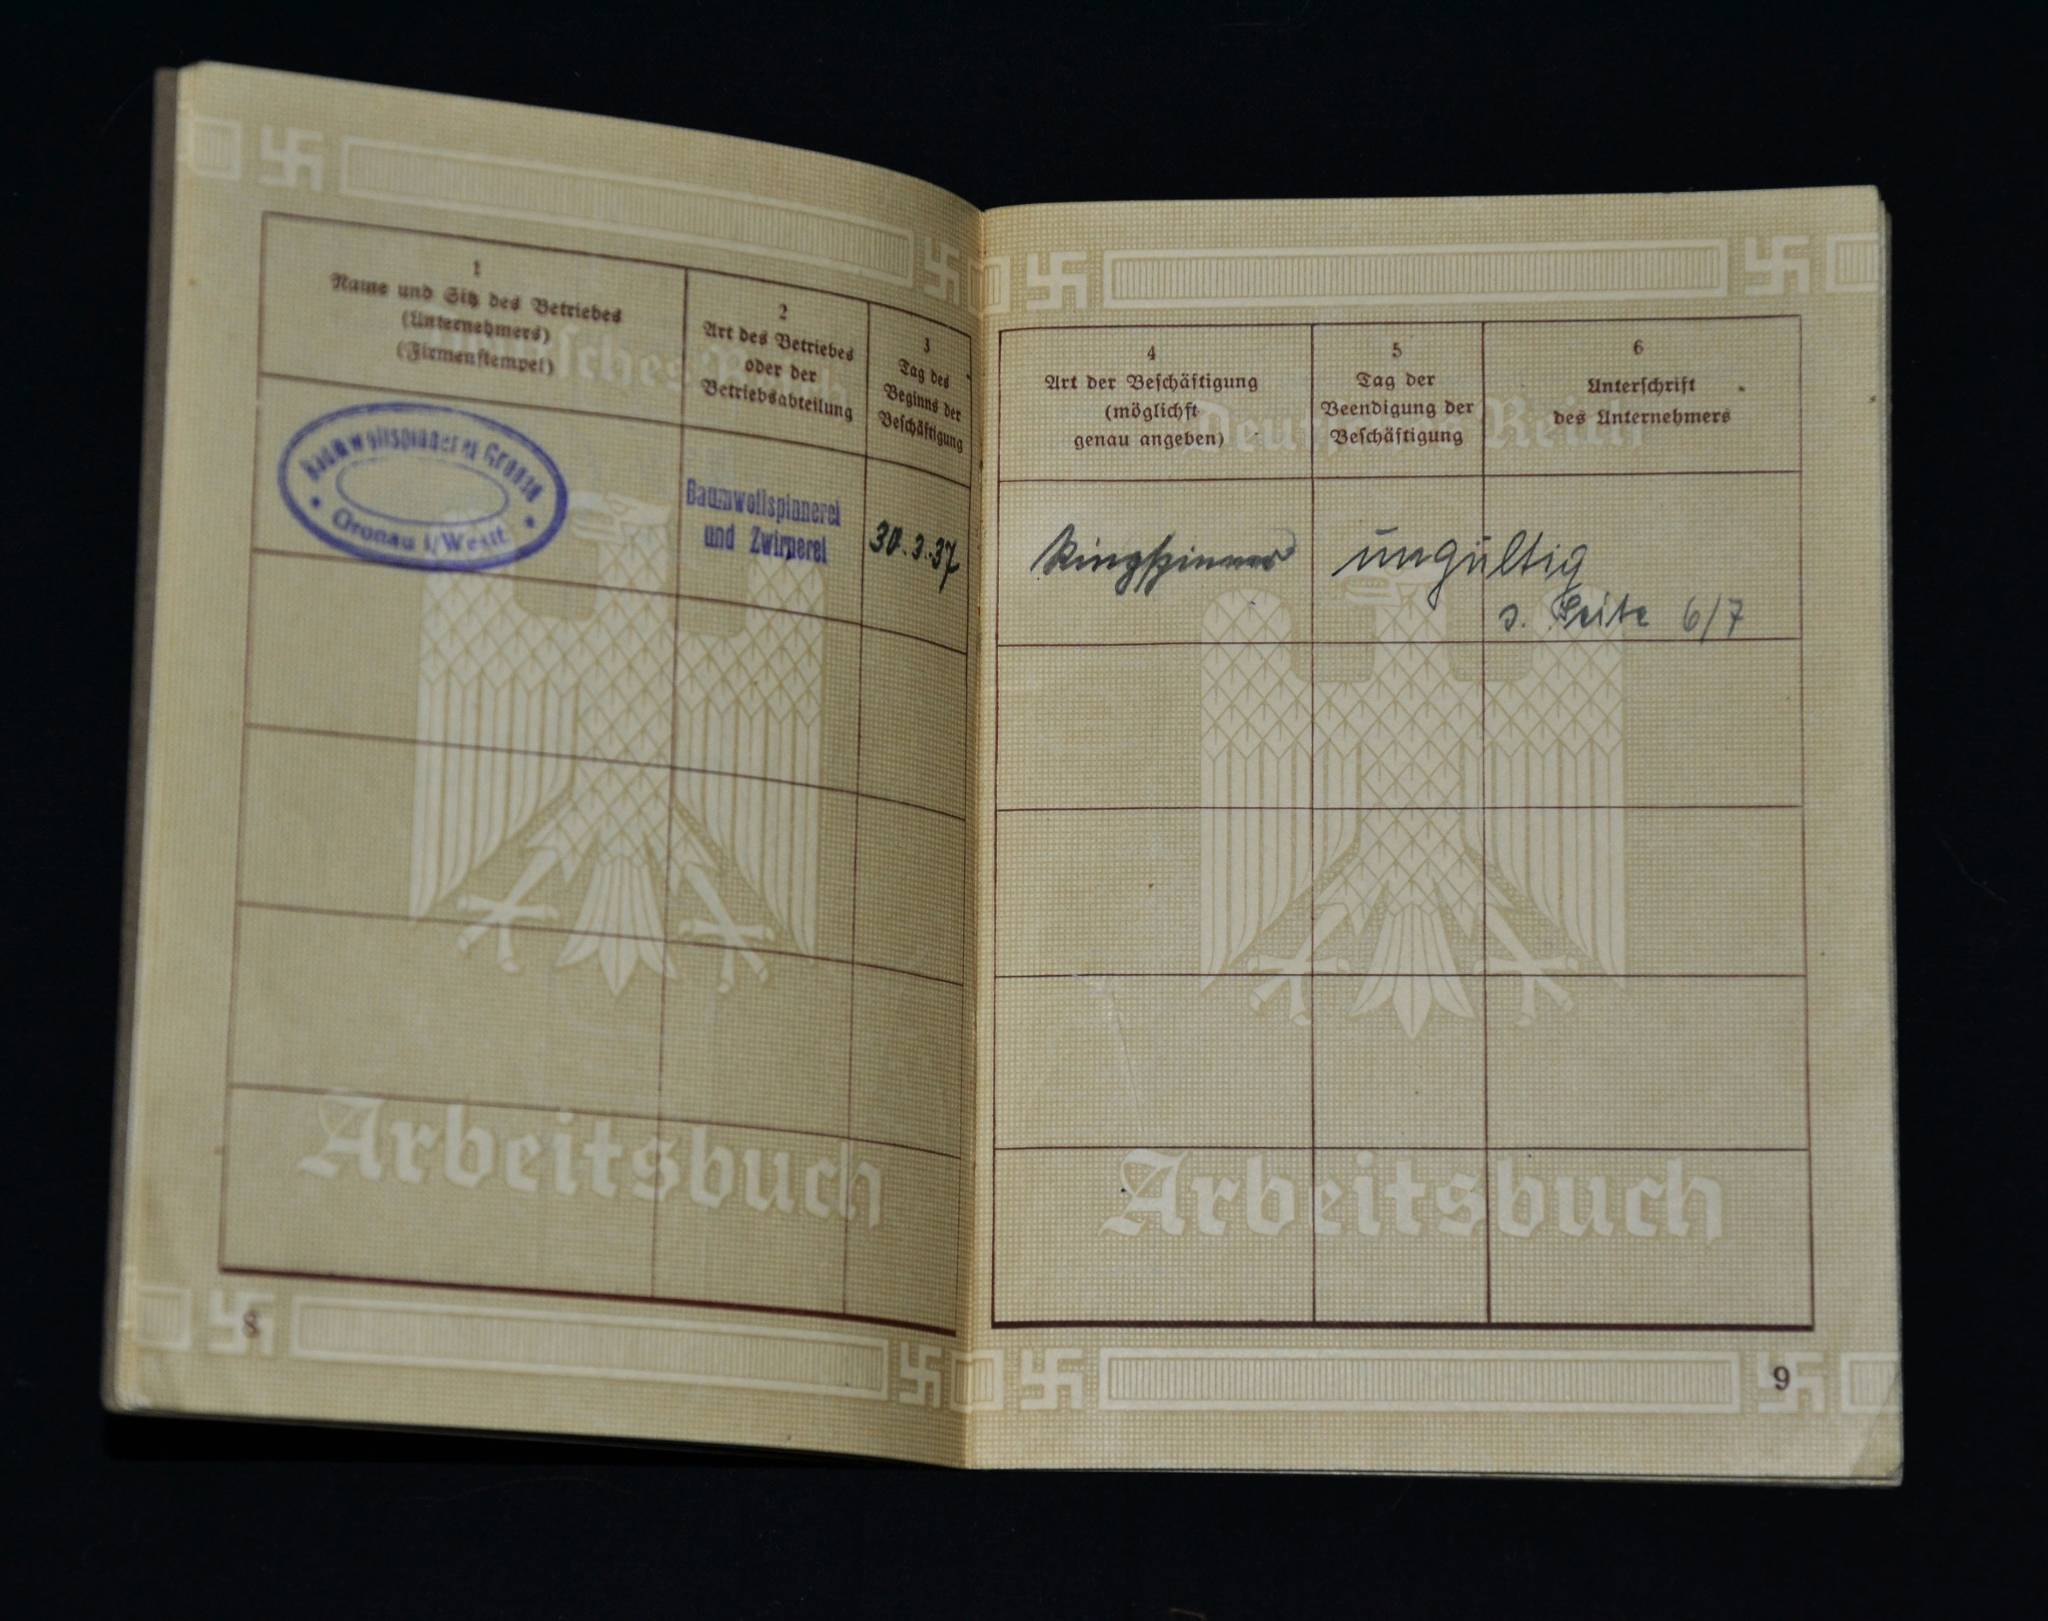 1
Name und Sitz des Betriebes
(Unternehmers)
(Firmenstempel)
2
Art des Betriebes
oder der
Betriebsabteilung
3
Tag des
Beginns der
Beschäftigung
Baumwollspinnerei Gronau
Gronau i/Westf.
Baumwollspinnerei
und Zwirnerei
30.3.37
Deutsches Reich
Arbeitsbuch
8
4
Art der Beschäftigung
(möglichst
genau angeben)
5
Tag der
Beendigung der
Beschäftigung
6
Unterschrift
des Unternehmers
Ringspinner
ungültig
s. Seite 6/7
Deutsches Reich
Arbeitsbuch
9